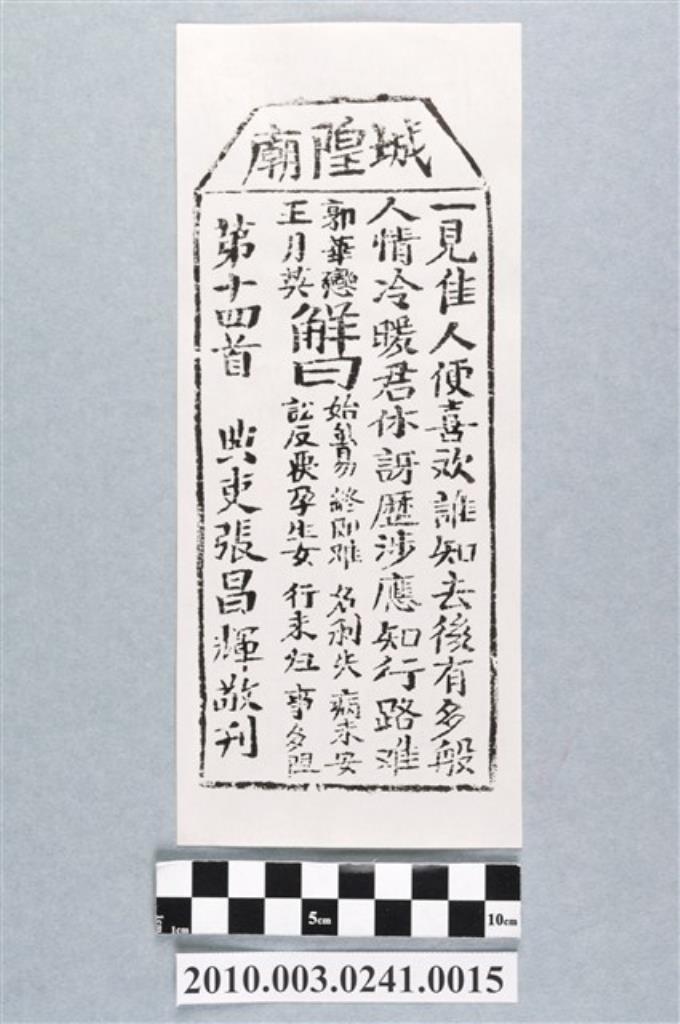 城隍廟
一見隹人便喜欢誰知去後有多般
人情冷暖君休訝歷涉應知行路难
郭華戀
王月英
解曰
始雖易終即难 名利失 病未安
訟反覆孕生女 行未归 事多阻
第十四首 典吏張昌輝敬刊
1cm 5cm 10cm
2010.003.0241.0015